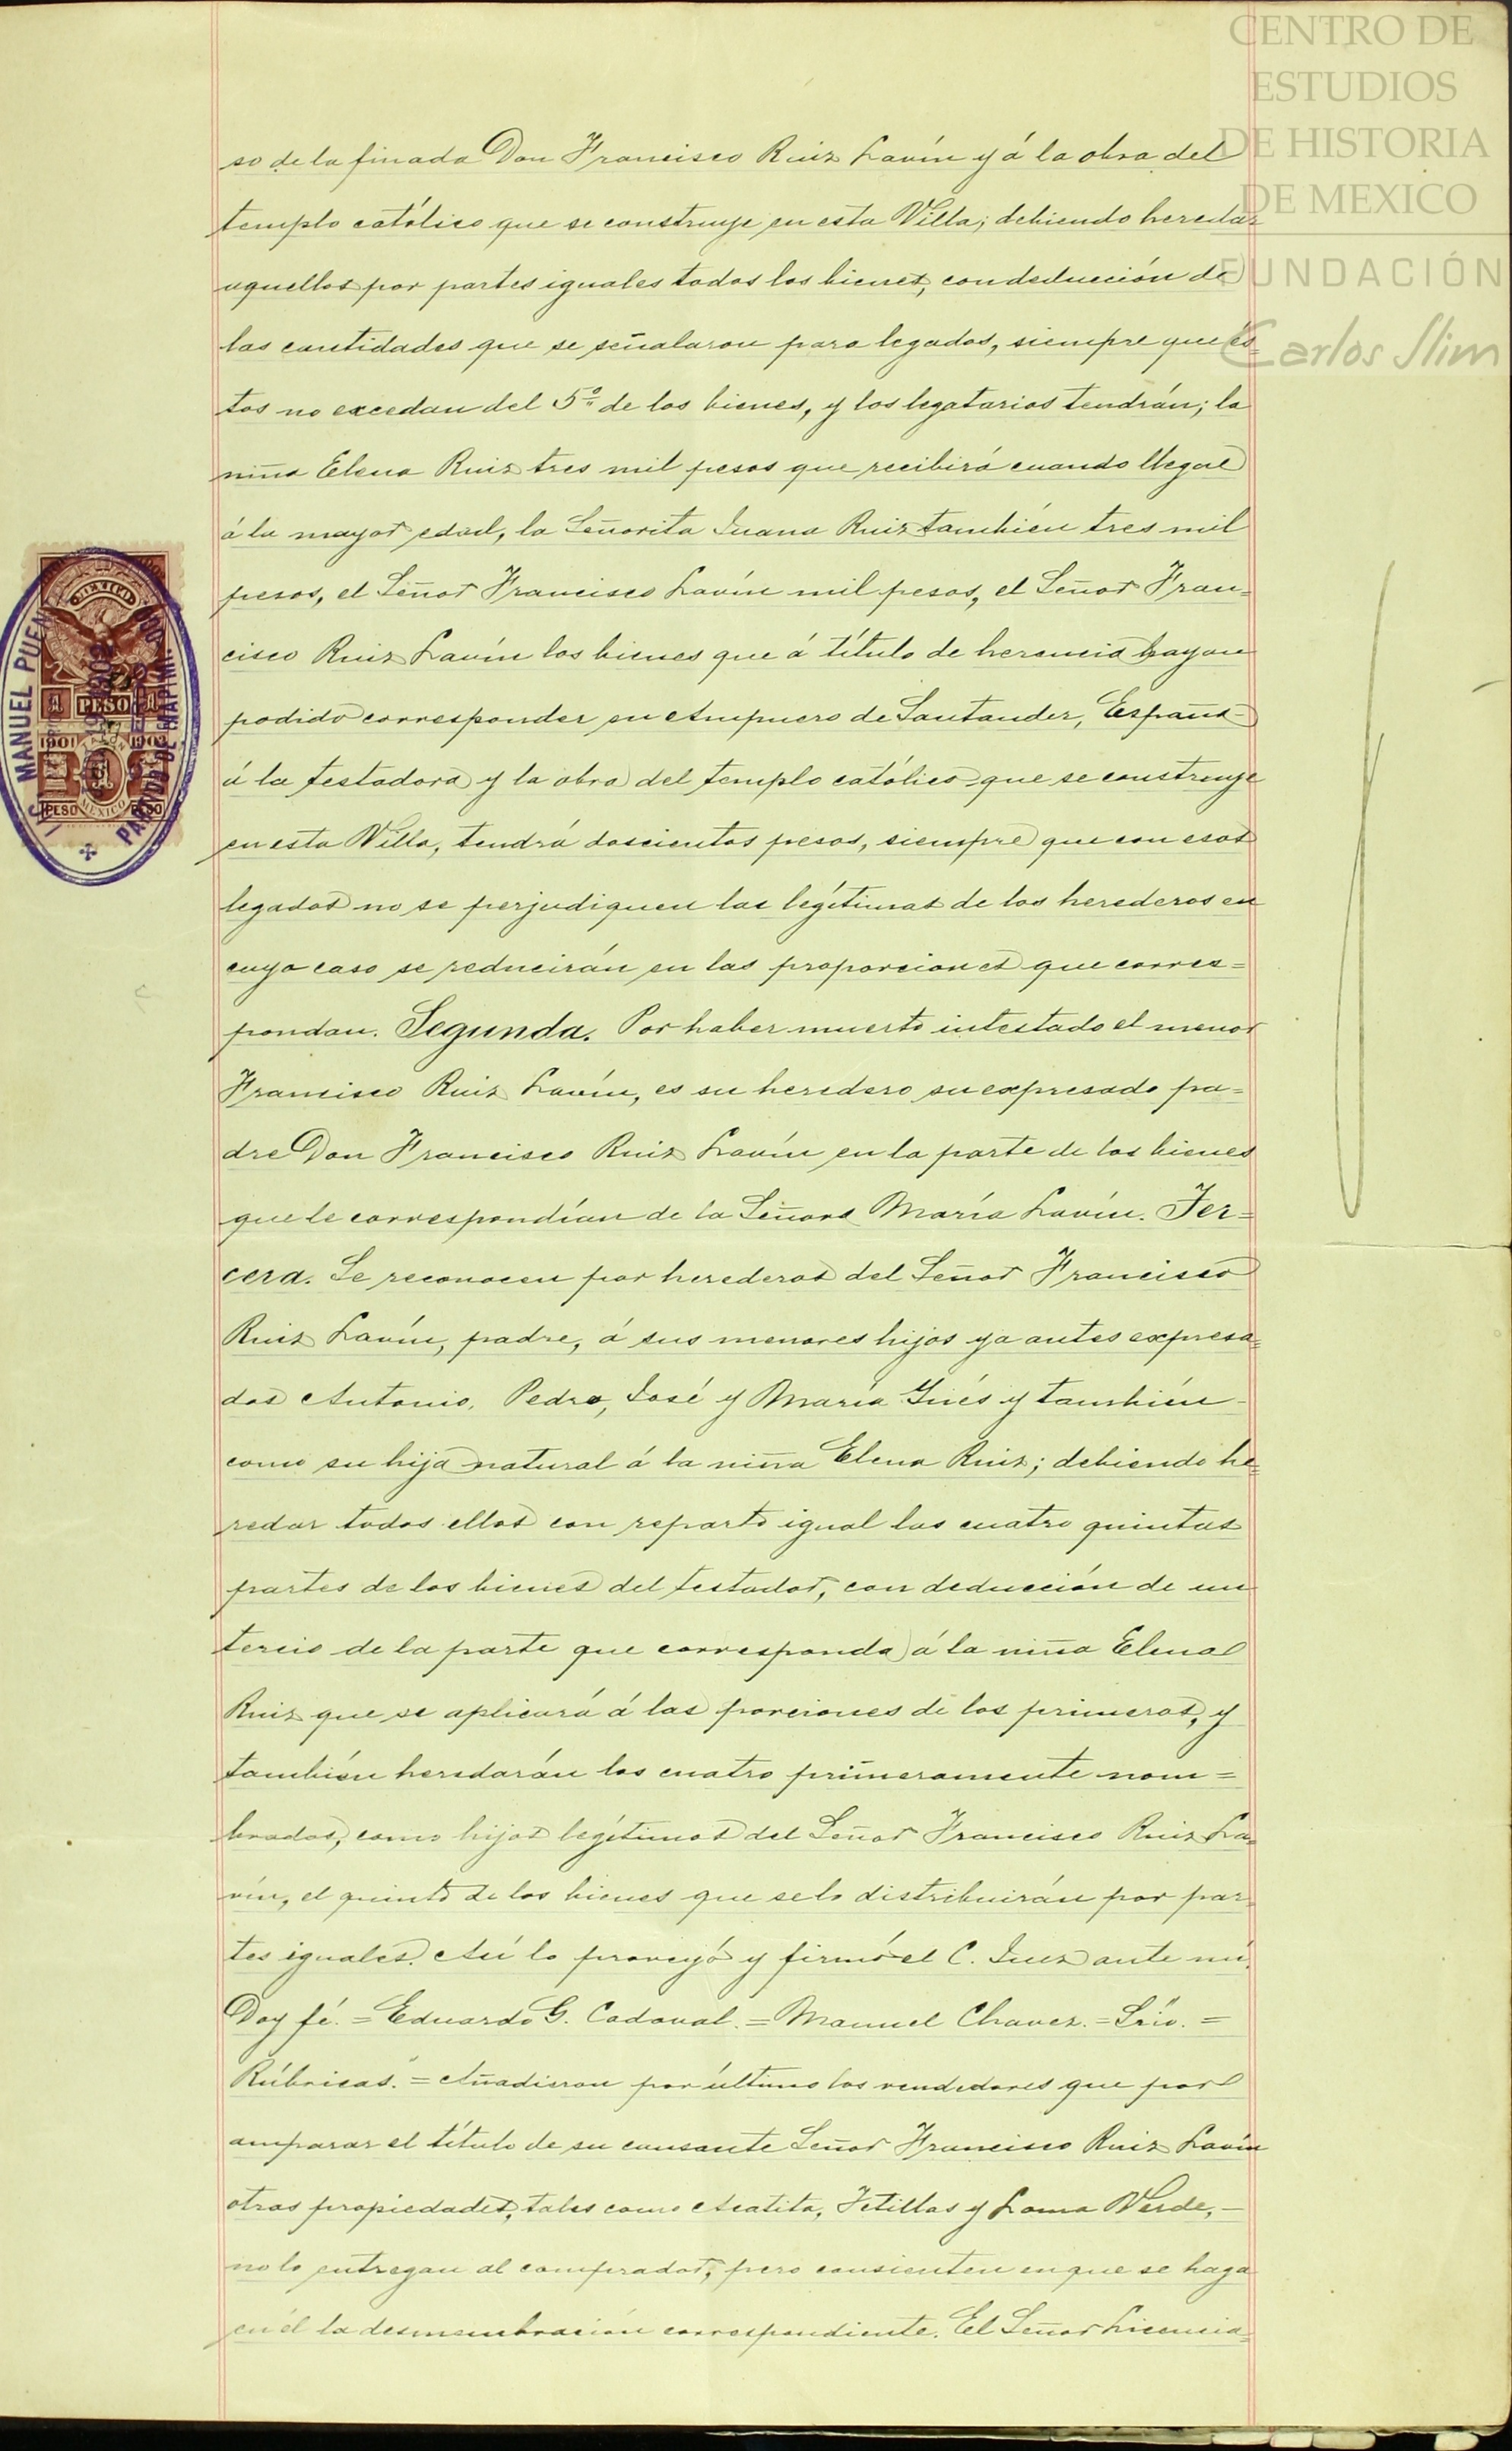 CENTRO DE
ESTUDIOS
DE HISTORIA
DE MEXICO
FUNDACIÓN
Carlos Slim
so de la finada Don Francisco Ruiz Lavín y á la obra del
templo católico que se construye en esta Villa; debiendo heredar
aquellos por partes iguales todos los bienes, con deducción de
las cantidades que se señalaron para legados, siempre que és-
tos no excedan del 5º de los bienes, y los legatarios tendrán; la
niña Elena Ruiz tres mil pesos que recibirá cuando llegue
á la mayor edad, la Señorita Juana Ruiz también tres mil
pesos, el Señor Francisco Lavín mil pesos, el Señor Fran=
cisco Ruiz Lavín los bienes que á título de herencia hayan
podido corresponder en Ampuero de Santander, España-
á la testadora y la obra del templo católico que se construye
en esta Villa, tendrá doscientos pesos, siempre que con esos
legados no se perjudiquen las legítimas de los herederos en
cuyo caso se reducirán en las proporciones que corres=
pondan. Segunda. Por haber muerto intestado el menor
Francisco Ruiz Lavín, es su heredero su expresado pa=
dre Don Francisco Ruiz Lavín en la parte de los bienes
que le correspondían de la Señora María Lavín. Ter=
cera. Se reconocen por herederos del Señor Francisco
Ruiz Lavín, padre, á sus menores hijos ya antes expresa=
dos Antonio, Pedro, José y María Ynés y también-
como su hija natural á la niña Elena Ruiz; debiendo he=
redar todos ellos con reparto igual las cuatro quintas
partes de los bienes del testador, con deducción de un
tercio de la parte que corresponda á la niña Elena
Ruiz que se aplicará á las porciones de los primeros, y
también heredarán los cuatro primeramente nom=
brados, como hijos legítimos del Señor Francisco Ruiz La=
vín, el quinto de los bienes que se lo distribuirán por par=
tes iguales. Así lo proveyó y firmó el C. Juez ante mí.
Doy fé. = Eduardo G. Cadoval. = Manuel Chavez. = Srio. =
Rúbricas." = Añadieron por último los vendedores que por
amparar el título de su causante Señor Francisco Ruiz Lavín
otras propiedades, tales como Acatita, Tetillas y Loma Verde,-
no lo entregan al comprador, pero consienten en que se haga
en él la desmembración correspondiente. El Señor Licencia=
MEXICO
1 PESO 1
1901 1902
PESO MEXICO PESO
LIC. MANUEL PUEN
PARTIDO DE MAPIMI